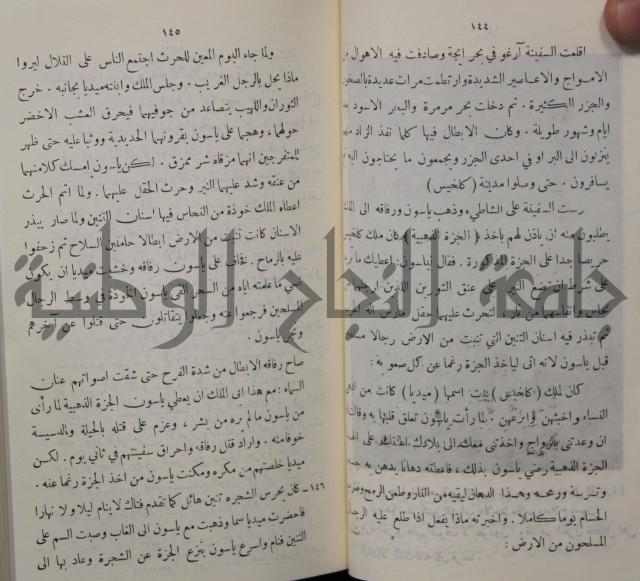 ١٤٤
اقلعت السفينة آرغو في بحر ايجة وصادفت فيه الاهوال من
الامواج والاعاصير الشديدة وارتطمت مرات عديدة بالصخور
والجزر الكثيرة . ثم دخلت بحر مرمرة والبحر الاسود بعد
ايام وشهور طويلة . وكان الابطال فيها كلما نفذ الزاد منهم
ينزلون الى البر او في احدى الجزر ويجمعون ما يحتاجون اليه ثم
يسافرون . حتى وصلوا مدينة ( كلخيس )
رست السفينة على الشاطىء وذهب ياسون ورفاقه الى الملك
يطلبون منه ان يأذن لهم بأخذ ( الجزة الذهبية ) وكان ملك كلخيس
حريصا جدا على الجزة المذكورة . فقال لياسون : اعطيك ما تريد
على شرط ان تضع النير على عنق الثورين الذين ارجلهما من
نحاس وانفاسهما من نار ، لتحرث عليهما حقل مارس آله الحرب
ثم تبذر فيه اسنان التنين التي تنبت من الارض رجالا مسلحين
قبل ياسون لانه اتى ليأخذ الجزة رغما عن كل صعوبة :
كان لملك ( كلخيس ) بنت اسمها ( ميديا ) كانت من ادهى
النساء واخبثهن وابرعهن . لما رأت ياسون تعلق قلبها به وقالت له
ان وعدتني بالزواج واخذتني معك الى بلادك اعنتك على اخذ
الجزة الذهبية رضي ياسون بذلك ، فاعطته دهانا يدهن به جسمه
وترسه ورمحه وهذا الدهان ليقيه من النار وطعن الرمح وضرب
الحسام يوما كاملا . واخبرته ماذا يفعل اذا طلع عليه الرجال
المسلحون من الارض :
١٤٥
ولما جاء اليوم المعين للحرث اجتمع الناس على التلال ليروا
ماذا يحل بالرجل الغريب . وجلس الملك وابنته ميديا بجانبه . خرج
الثوران واللهيب يتصاعد من جوفيهما فيحرق العشب الاخضر
حولهما ، وهجما على ياسون بقرونهما الحديدية ووثبا عليه حتى ظهر
للمتفرجين انهما مزقاه شر ممزق . لكن ياسون امسك كلا منهما
من عنقه وشد عليهما النير وحرث الحقل عليهما . ولما اتم الحرث
اعطاه الملك خوذة من النحاس فيها اسنان التنين ولما صار يبذر
الاسنان كانت تنبت من الارض ابطالا حاملين السلاح ثم زحفوا
عليه بالرماح . نخاف على ياسون رفاقه وخشيت ميديا ان يكون
نسي ما علمته اياه من السحر التي ياسون الخوذة في وسط الرجال
المسلحين فرجعوا عنه وجعلوا يتقاتلون حتى قتلوا عن آخرهم
ونجى ياسون .
صاح رفاقه الابطال من شدة الفرح حتى شقت اصواتهم عنان
السماء : مع هذا ابى الملك ان يعطي ياسون الجزة الذهبية لما رأى
من ياسون ما لم يره من بشر ، وعزم على قتله بالحيلة والدسيسة
خوفا منه . واراد قتل رفاقه واحراق سفينتهم في ثاني يوم . لكن
ميديا خلصتهم من مكره ومكنت ياسون من اخذ الجزة رغما عنه .
١٤٦ - كان يحرس الشجره تنين هائل كما تقدم فتاك لا ينام ليلا ولا نهارا
فاحضرت ميديا سما وذهبت مع ياسون الى الغاب وصبت السم على
التنين فنام واسرع ياسون ينزع الجزة عن الشجرة وعاد بها الى
جامعة النجاح الوطنية